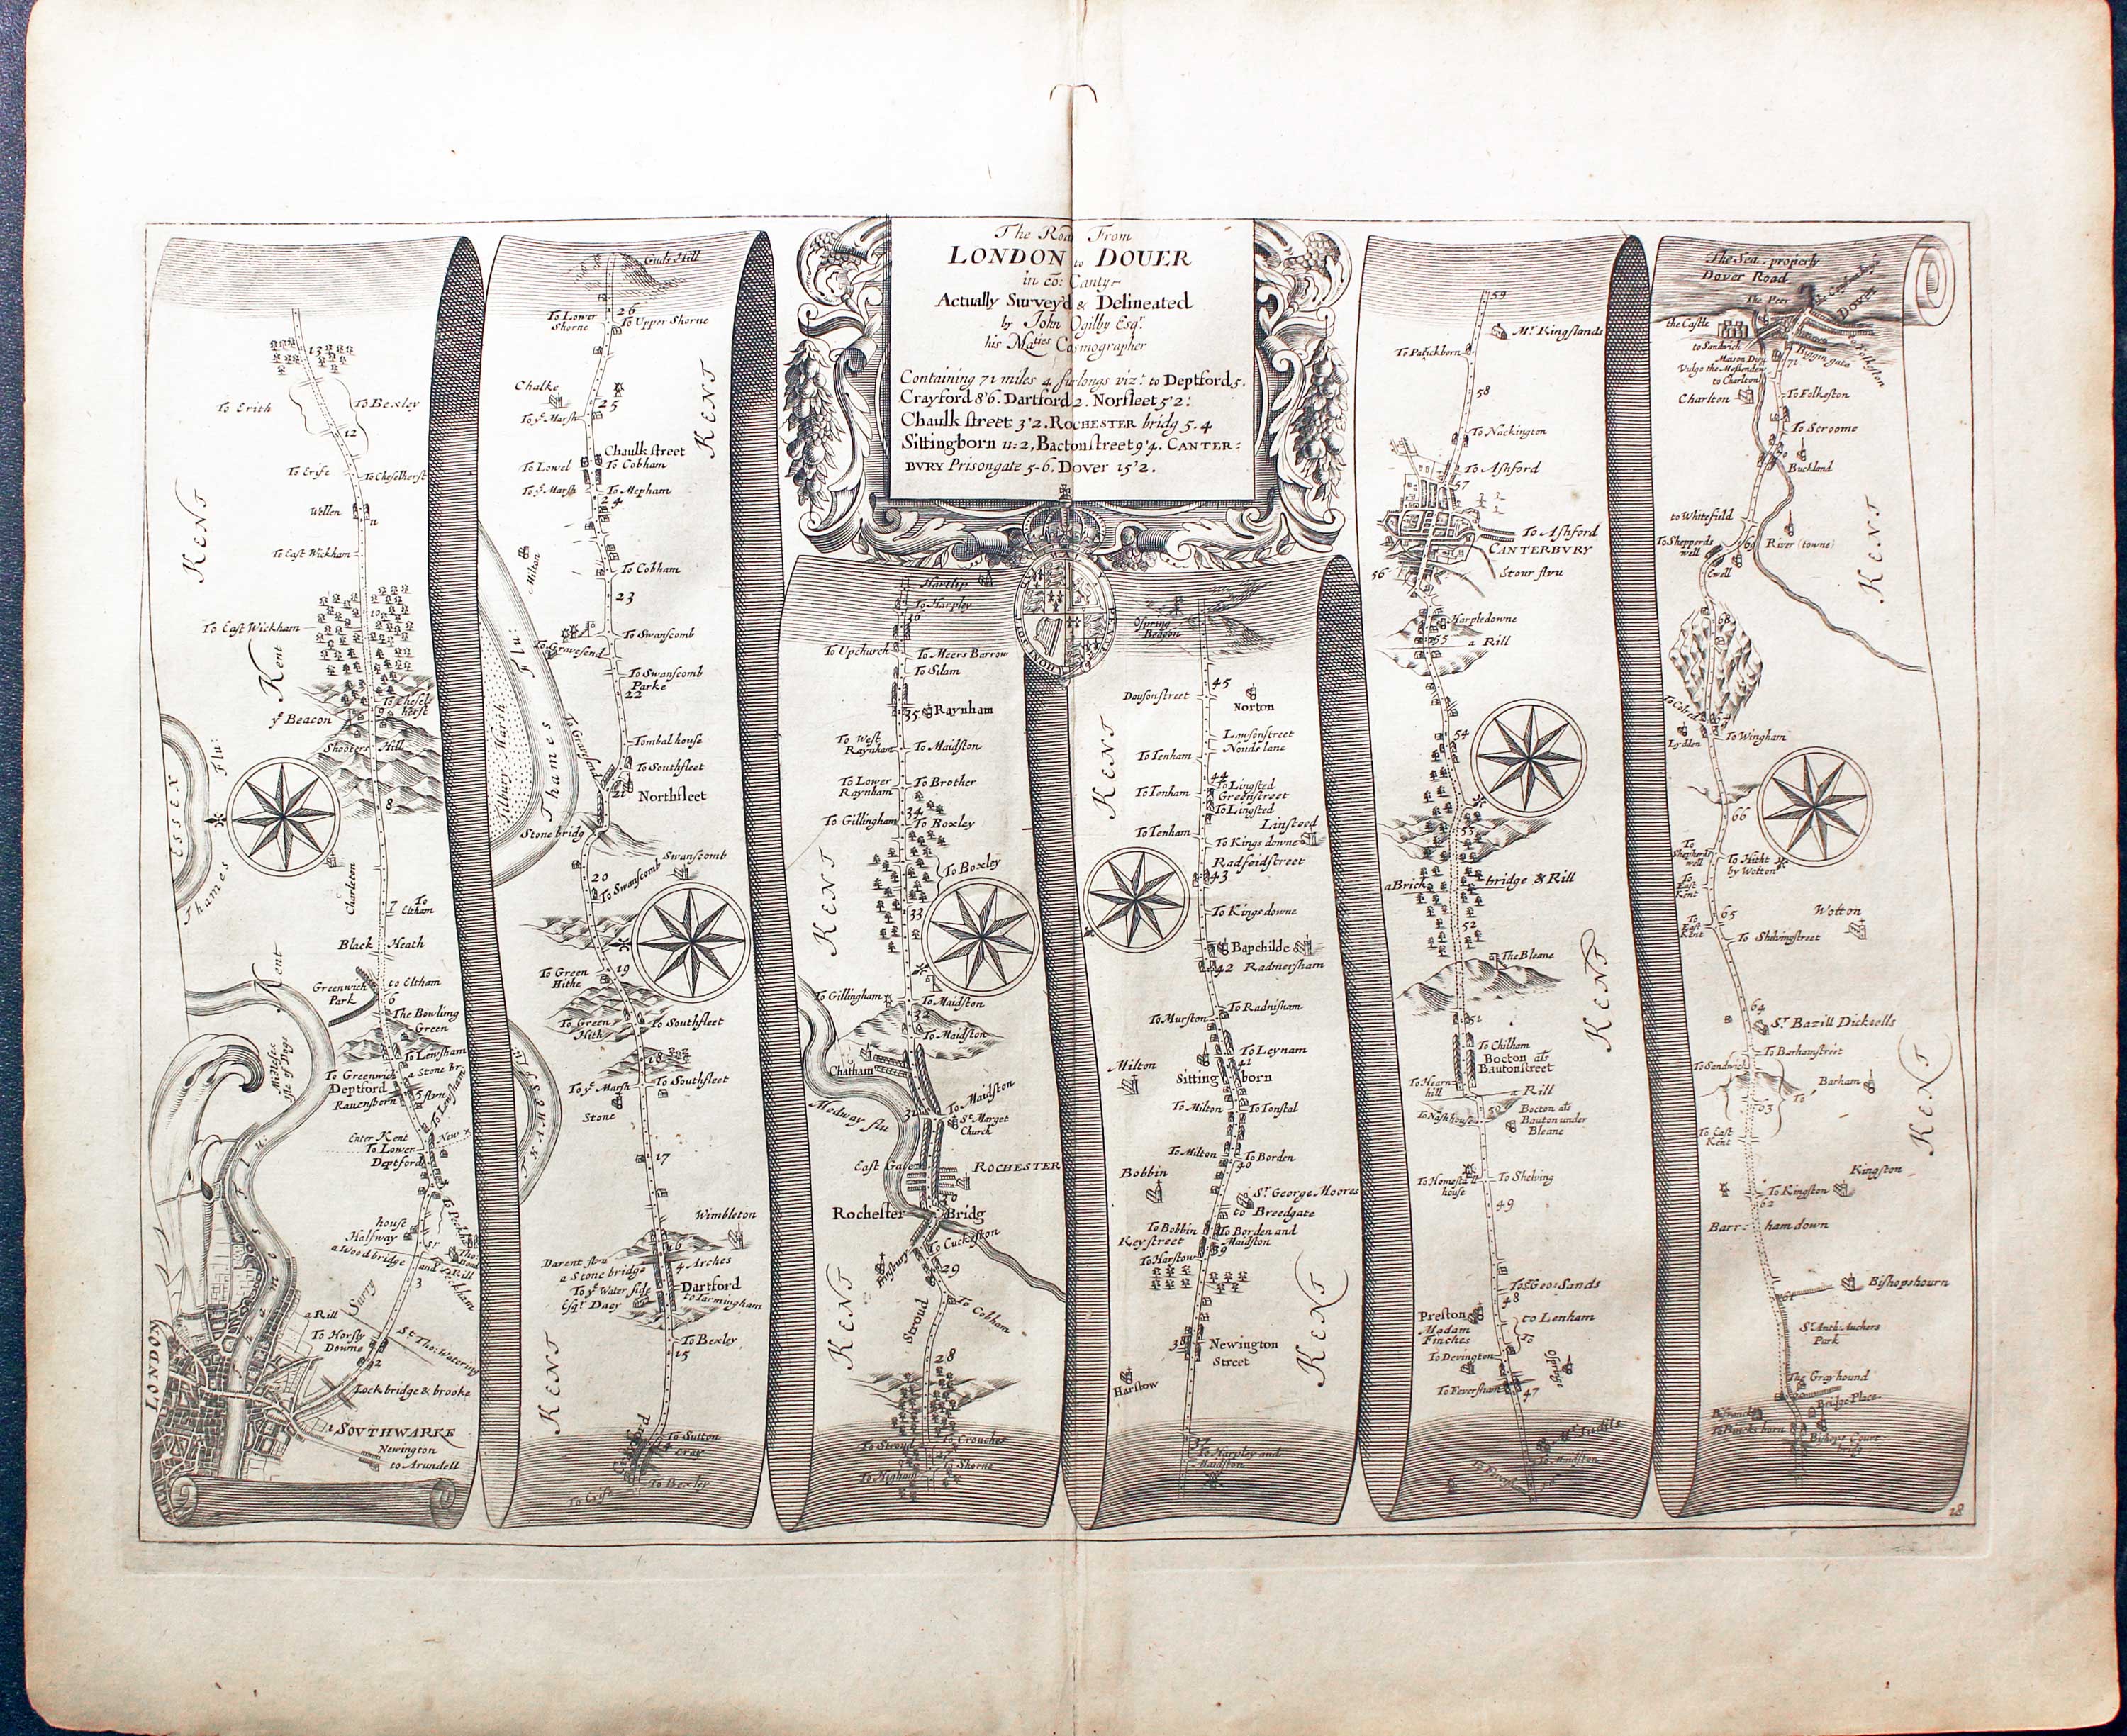 The Road From
LONDON to DOVER
in cō: Canty
Actually Survey'd & Delineated
by John Ogilby Esqr.
his Maties Cosmographer
Containing 71 miles 4 furlongs vizt. to Deptford 5.
Crayford 8'6. Dartford 2. Norfleet 5'2:
Chaulk street 3'2. ROCHESTER bridg 5.4
Sittingborn 11:2, Bacton street 9'4. CANTER:
BVRY Prisongate 5-6. Dover 15'2.
13
To Erith
To Bexley
12
To Erife
To Cheselherst
Wellen
11
To East Wickham
KENT
10
To East Wickham
Kent
To Chesel
herst
9
ye Beacon
Shooters Hill
Flu:
ESSEX
8
Thames
Charleton
7
To
Eltham
Black Heath
Kent
Greenwich
Park
to Eltham
6
The Bowling
Green
To Lewsham
a Stone br.
To Greenwich
Deptford
Ravensborn
5 fluv
To Lewsham
Midlesex
Isle of Dogs
Enter Kent
To Lower
Deptford
New
To Peckham
house
Halfway
a Wood bridge
and Rill
3
To Peckham
Surry
a Rill
To Horsly
Downe
2
St Tho: Watering
Lock bridge & brooke
LONDON
1 SOVTHWARKE
Newington
to Arundell
THAMES FLU:
Gads Hill
26
To Lower
Shorne
To Upper Shorne
Chalke
25
To ye Marsh
KENT
Chaulk street
To Lowel
To Cobham
To ye Marsh
To Mepham
24
Milton
To Cobham
23
To Gravesend
To Swanscomb
To Swanscomb
Parke
22
Flu:
Tilbury Marsh
Thames
To Gravesend
Tombal house
To Southfleet
21
Northfleet
Stone bridg
Swanscomb
20
To Swanscomb
To Green
Hithe
19
To Green
Hith
To Southfleet
18
To ye Marsh
To Southfleet
Stone
THAMES
17
Wimbleton
16
Darent fluv
a Stone bridge
4 Arches
To ye Water side
Dartford
Esqr Dacy
to Farmingham
To Bexley
15
KENT
Crayford
To Sutton
Cray
To Erife
To Bexley
Hartlip
To Harpley
36
To Upchurch
To Meers Barrow
To Silam
35
Raynham
To West
Raynham
To Maidston
To Lower
Raynham
To Brother
34
To Gillingham
To Boxley
To Boxley
KENT
33
To Gillingham
To Maidston
32
To Maidston
Chatham
Medway flu
31
To Maidston
St Marget
Church
East Gate
ROCHESTER
30
Rochester Bridg
To Cuckston
Finsbury
29
Stroud
To Cobham
KENT
28
To Stroud
To Crouches
To Higham
To Shorne
Ospring
Beacon
45
Dauson street
Norton
Lawson street
Nouds lane
To Tenham
44
KENT
To Lingsted
Greenstreet
To Tenham
To Lingsted
Linsteed
To Tenham
To Kings downe
Radfeidstreet
43
To Kings downe
Bapchilde
42 Radmersham
To Radnisham
To Murston
To Leynam
41
Milton
Sitting born
To Milton
To Tonstal
To Milton
To Borden
40
Bobbin
Sr George Moores
to Breedgate
To Bobbin
To Borden and
Maidston
Key street
39
To Harstow
KENT
38
Newington
Street
Harstow
37
To Harpley and
Maidston
59
Mr Kingslands
To Patickborn
58
To Nackington
To Ashford
57
To Ashford
CANTERBVRY
56
Stour fluv
Harpledowne
55
a Rill
54
53
a Brick bridge & Rill
52
The Bleane
KENT
51
To Chilham
Bocton als
Bauton street
To Hearn
hill
a Rill
50
To Nashhouse
Bocton als
Bauton under
Bleane
To Homesta
house
To Shelving
49
To Sr Geo: Sands
48
Preston
to Lenham
Madam
Finches
To
To Devington
Ospringe
To Feversham
47
To Maidston
The Sea properly
Dover Road
The Peer
DOVER
the Castle
to Sandwich
Biggin gate
To Folkeston
Maison Dieu
Vulgo the Mesendew
to Charlton
71
Charlton
To Folkeston
To Scroome
70
Buckland
KENT
to Whitefield
To Shepperds
well
69
River (towne)
Ewell
68
67
Lydden
To Wingham
66
To
Shepherds
well
To Hithe
by Wotton
To
East
Kent
65
Wotton
To
East
Kent
To Shelvingstreet
64
Sr Bazill Dicksells
To Barhamstreet
To Sandwich
Barham
63
To
To East
Kent
KENT
Kingston
To Kingston
62
Barr: ham down
61
Bishopsbourn
Sr Anth: Auchers
Park
The Grayhound
Bridge Place
28